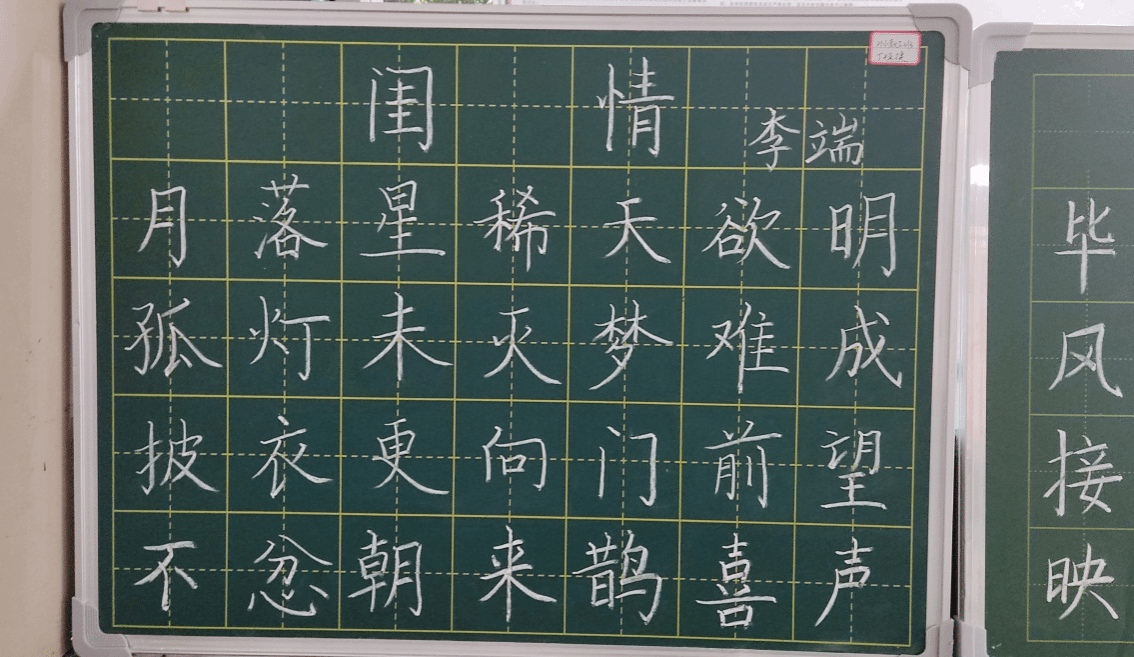 闺情
李端
月落星稀天欲明
孤灯未灭梦难成
披衣更向门前望
不忿朝来鹊喜声
毕
风
接
映